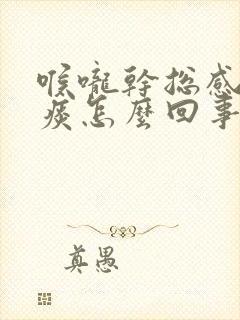 喉嚨幹總感
痰怎麼回事
真愚